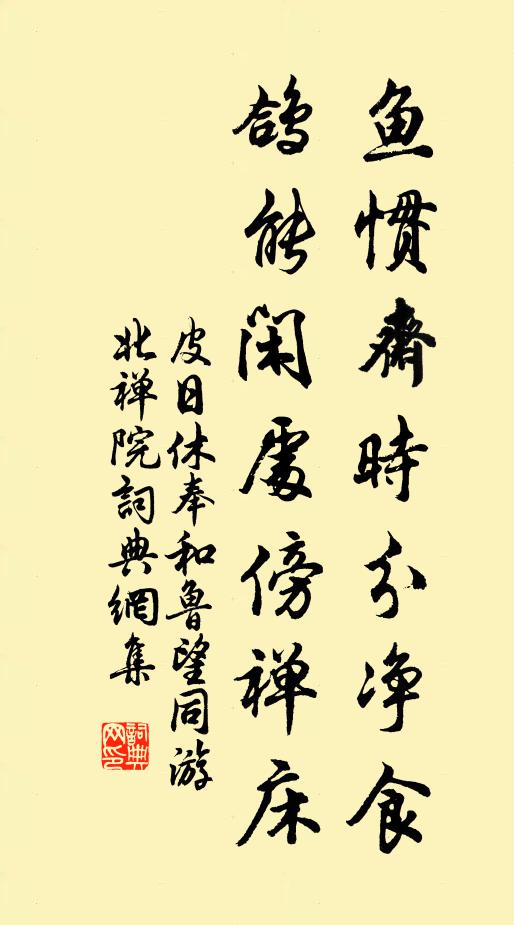 鱼慣齋時分净食
鸽能閑處傍禅床
皮日休奉和鲁望同游
北禅院詞典網集
詞典
网印